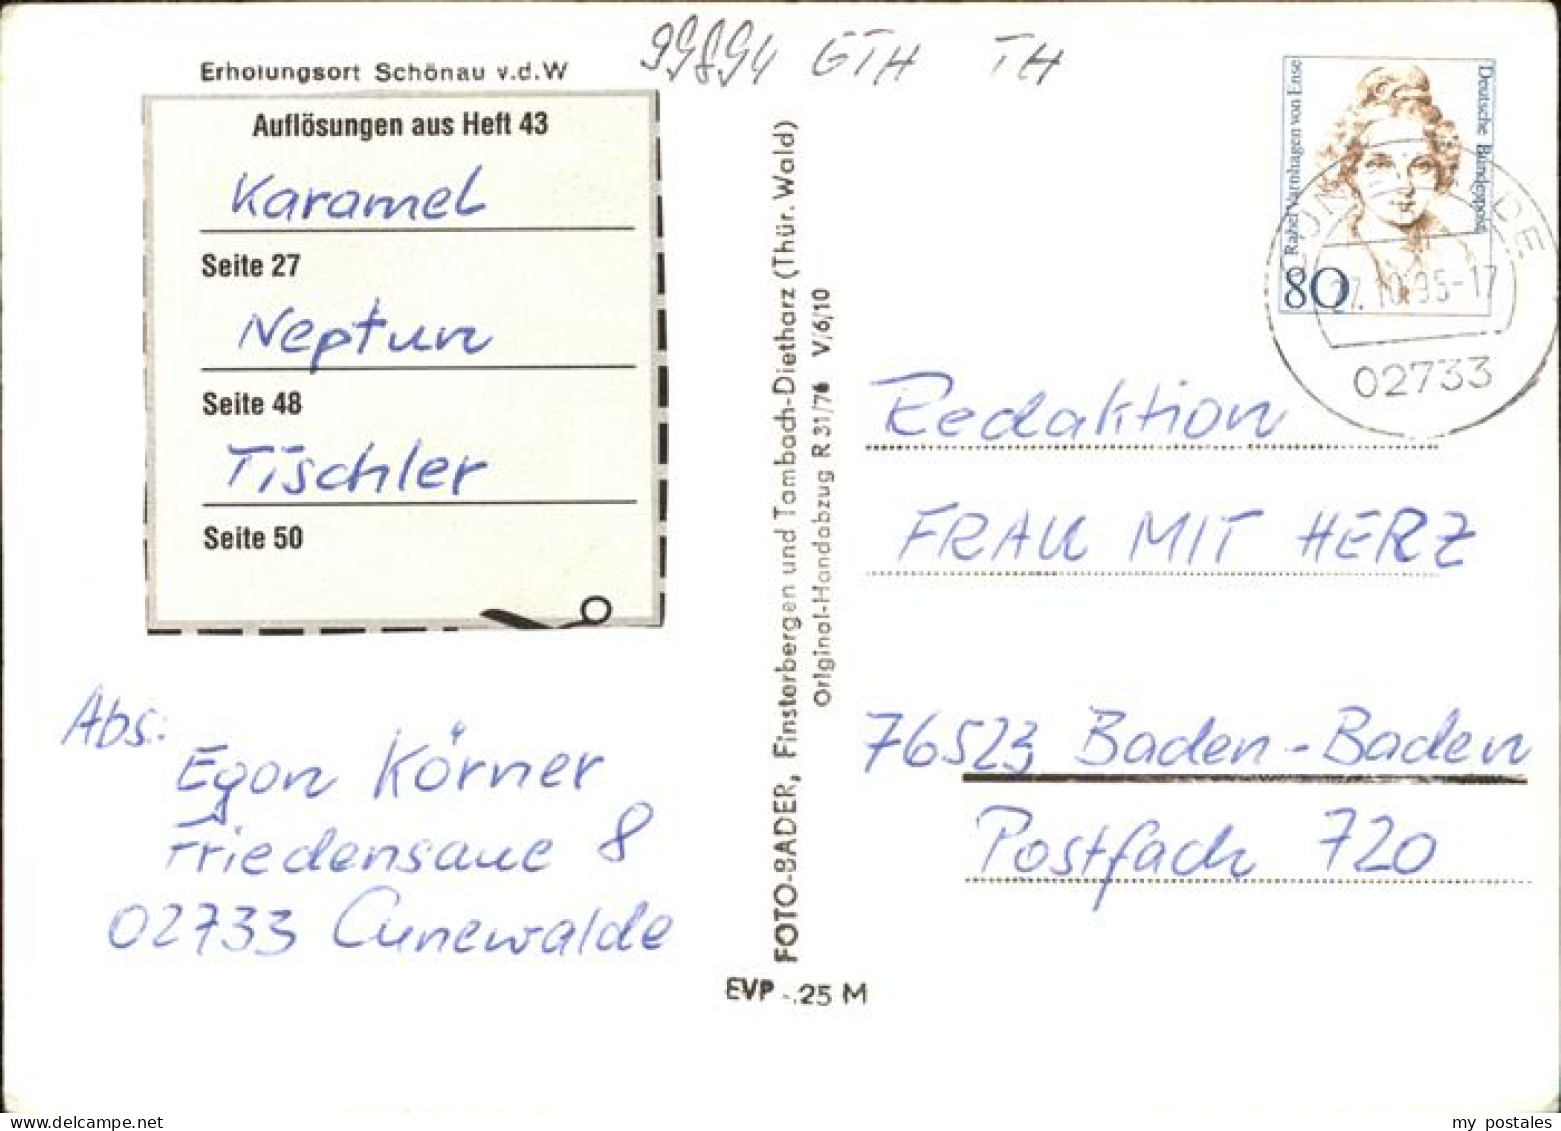 99894 GTH TH
Erholungsort Schönau v.d.W
Auflösungen aus Heft 43
Karamel
Seite 27
Neptun
Seite 48
Tischler
Seite 50
Abs.:
Egon Körner
Friedensaue 8
02733 Cunewalde
FOTO-BADER, Finsterbergen und Tambach-Dietharz (Thür. Wald)
Original-Handabzug R 31/76 V/6/10
EVP -.25 M
Rahel Varnhagen von Ense
Deutsche Bundespost
80
27.10.95-17
02733
Redaktion
FRAU MIT HERZ
76523 Baden-Baden
Postfach 720
my postales